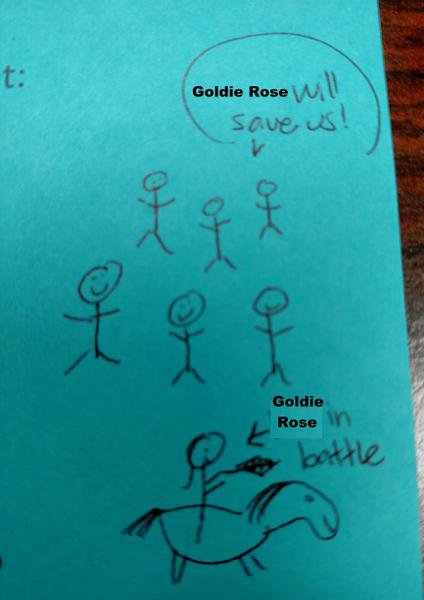 t:
Goldie Rose will
save us!
Goldie
Rose in
battle